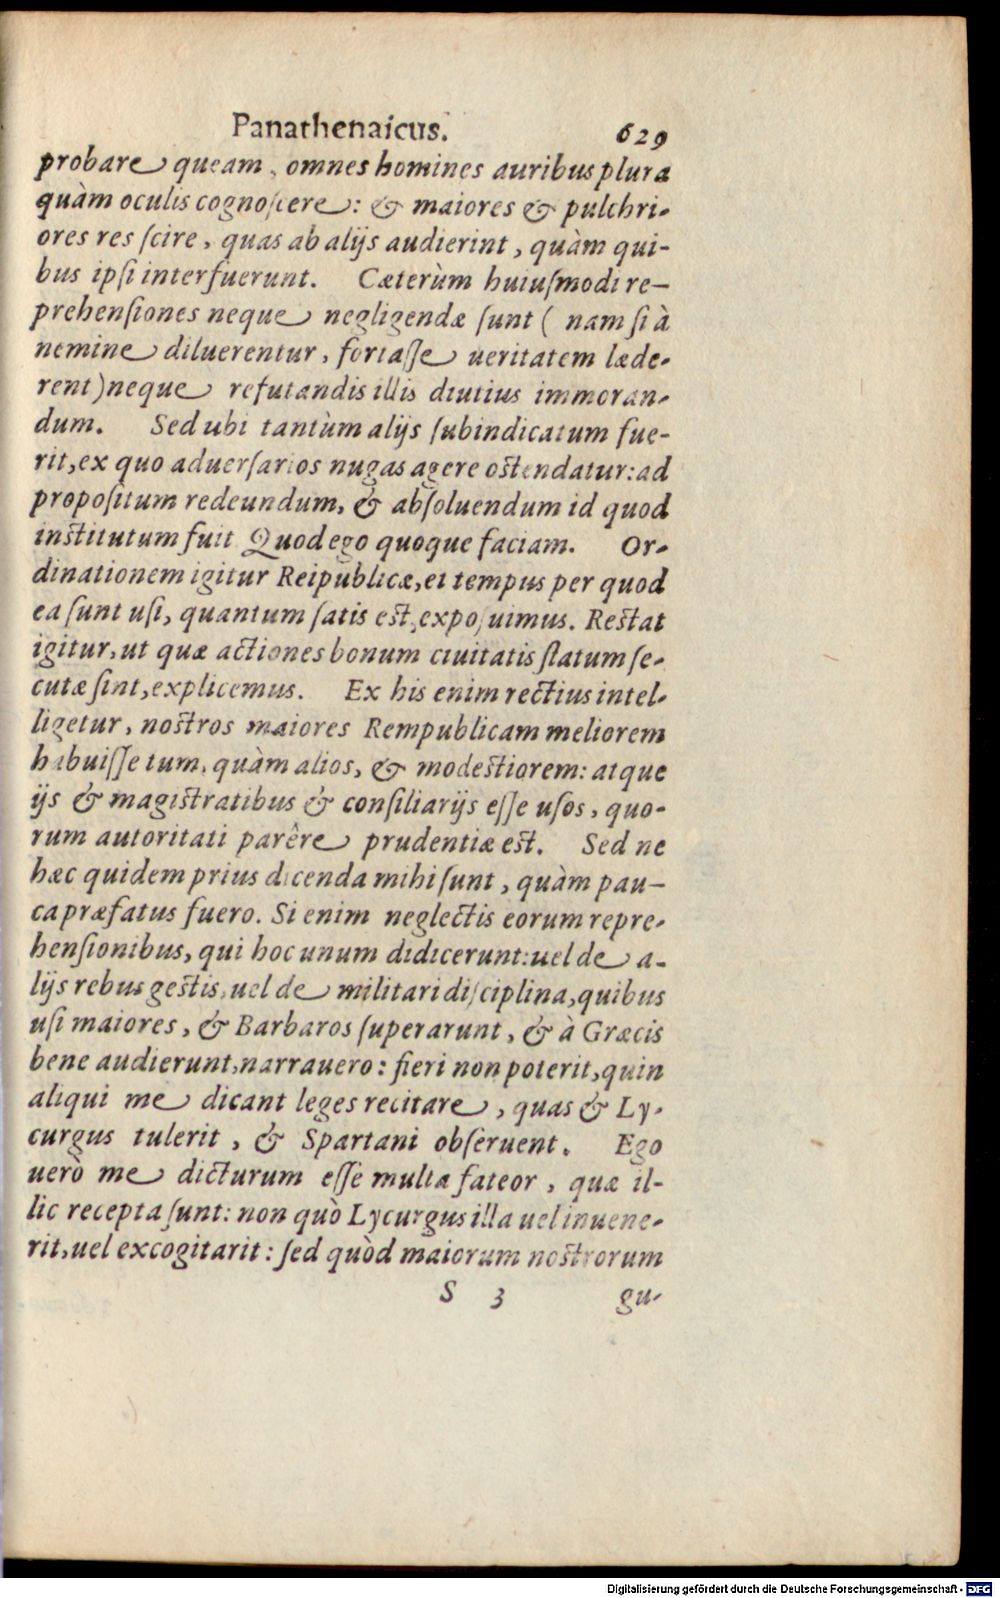 Panathenaicus. 629
probare queam, omnes homines auribus plura
quàm oculis cognoſcere: & maiores & pulchri-
ores res ſcire, quas ab alijs audierint, quàm qui-
bus ipſi interfuerunt. Cæterùm huiuſmodi re-
prehenſiones neque negligendæ ſunt ( nam ſi à
nemine diluerentur, fortaſſe ueritatem læde-
rent) neque refutandis illis diutius immoran-
dum. Sed ubi tantùm alijs ſubindicatum fue-
rit, ex quo aduerſarios nugas agere oſtendatur: ad
propoſitum redeundum, & abſoluendum id quod
inſtitutum fuit Quod ego quoque faciam. Or-
dinationem igitur Reipublicæ, et tempus per quod
ea ſunt uſi, quantum ſatis eſt, expoſuimus. Reſtat
igitur, ut quæ actiones bonum ciuitatis ſtatum ſe-
cutæ ſint, explicemus. Ex his enim rectius intel-
ligetur, noſtros maiores Rempublicam meliorem
habuiſſe tum, quàm alios, & modeſtiorem: atque
ijs & magiſtratibus & conſiliarijs eſſe uſos, quo-
rum autoritati parêre prudentiæ eſt. Sed ne
hæc quidem prius dicenda mihi ſunt, quàm pau-
ca præfatus fuero. Si enim neglectis eorum repre-
henſionibus, qui hoc unum didicerunt: uel de a-
lijs rebus geſtis, uel de militari diſciplina, quibus
uſi maiores, & Barbaros ſuperarunt, & à Græcis
bene audierunt, narrauero: fieri non poterit, quin
aliqui me dicant leges recitare, quas & Ly-
curgus tulerit, & Spartani obſeruent. Ego
uerò me dicturum eſſe multa fateor, quæ il-
lic recepta ſunt: non quò Lycurgus illa uel inuene-
rit, uel excogitarit: ſed quòd maiorum noſtrorum
S 3 gu-
Digitalisierung gefördert durch die Deutsche Forschungsgemeinschaft - DFG